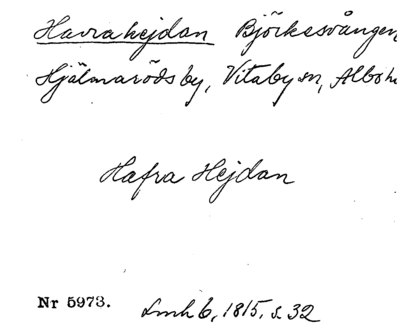 Havrahejdan Björkesvången
Hjälmaröds by, Vitaby sn, Albo h
Hafra Hejdan
Nr 5973. Lmh 6, 1815, s 32